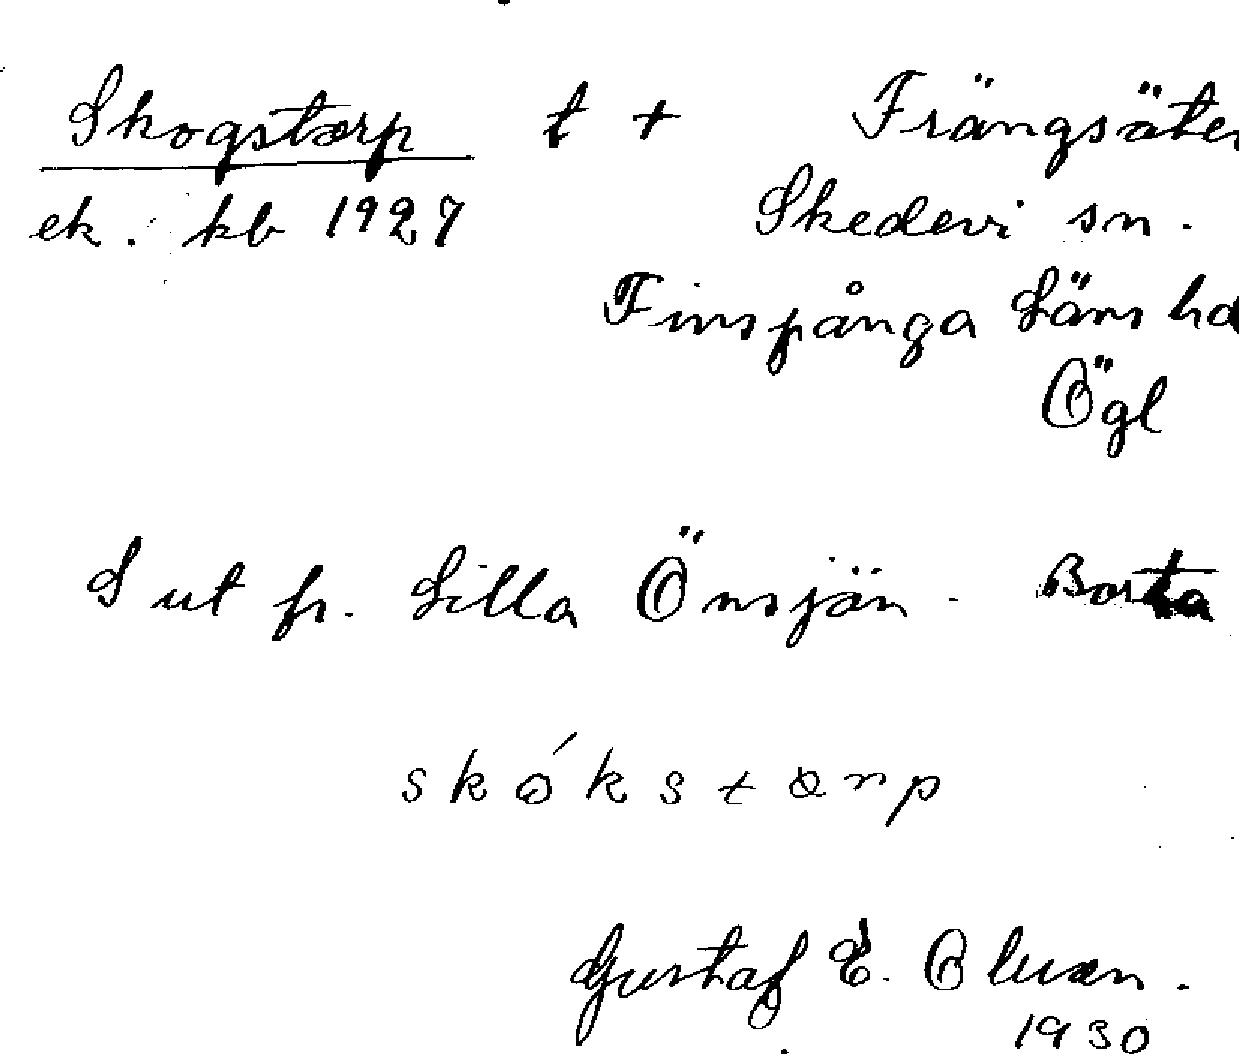 Skogstorp t + Frängsäter
ek. kb 1927 Skedevi sn.
Finspånga Läns hd
Ögl
S ut fr. Lilla Önsjön. Borta
skókstorp
Gustaf E. Oluan.
1930